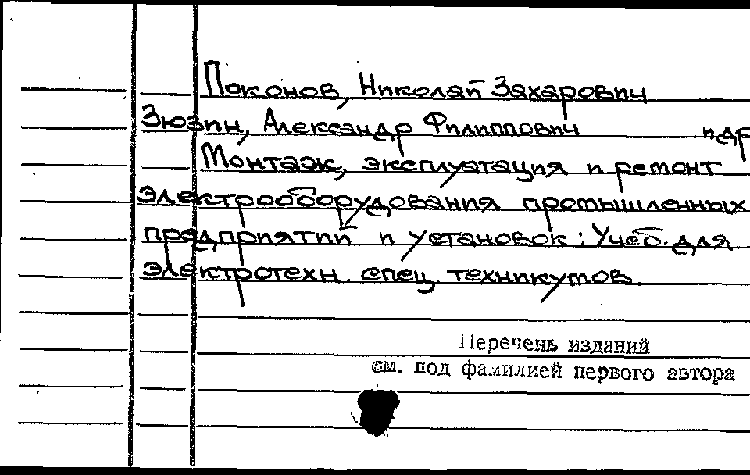 Поконов, Николай Захарович
Зюзин, Александр Филиппович и др
Монтаж, эксплуатация и ремонт
электрооборудования промышленных
предприятий и установок: Учеб. для
электротехн. спец. техникумов.
Перечень изданий
см. под фамилией первого автора